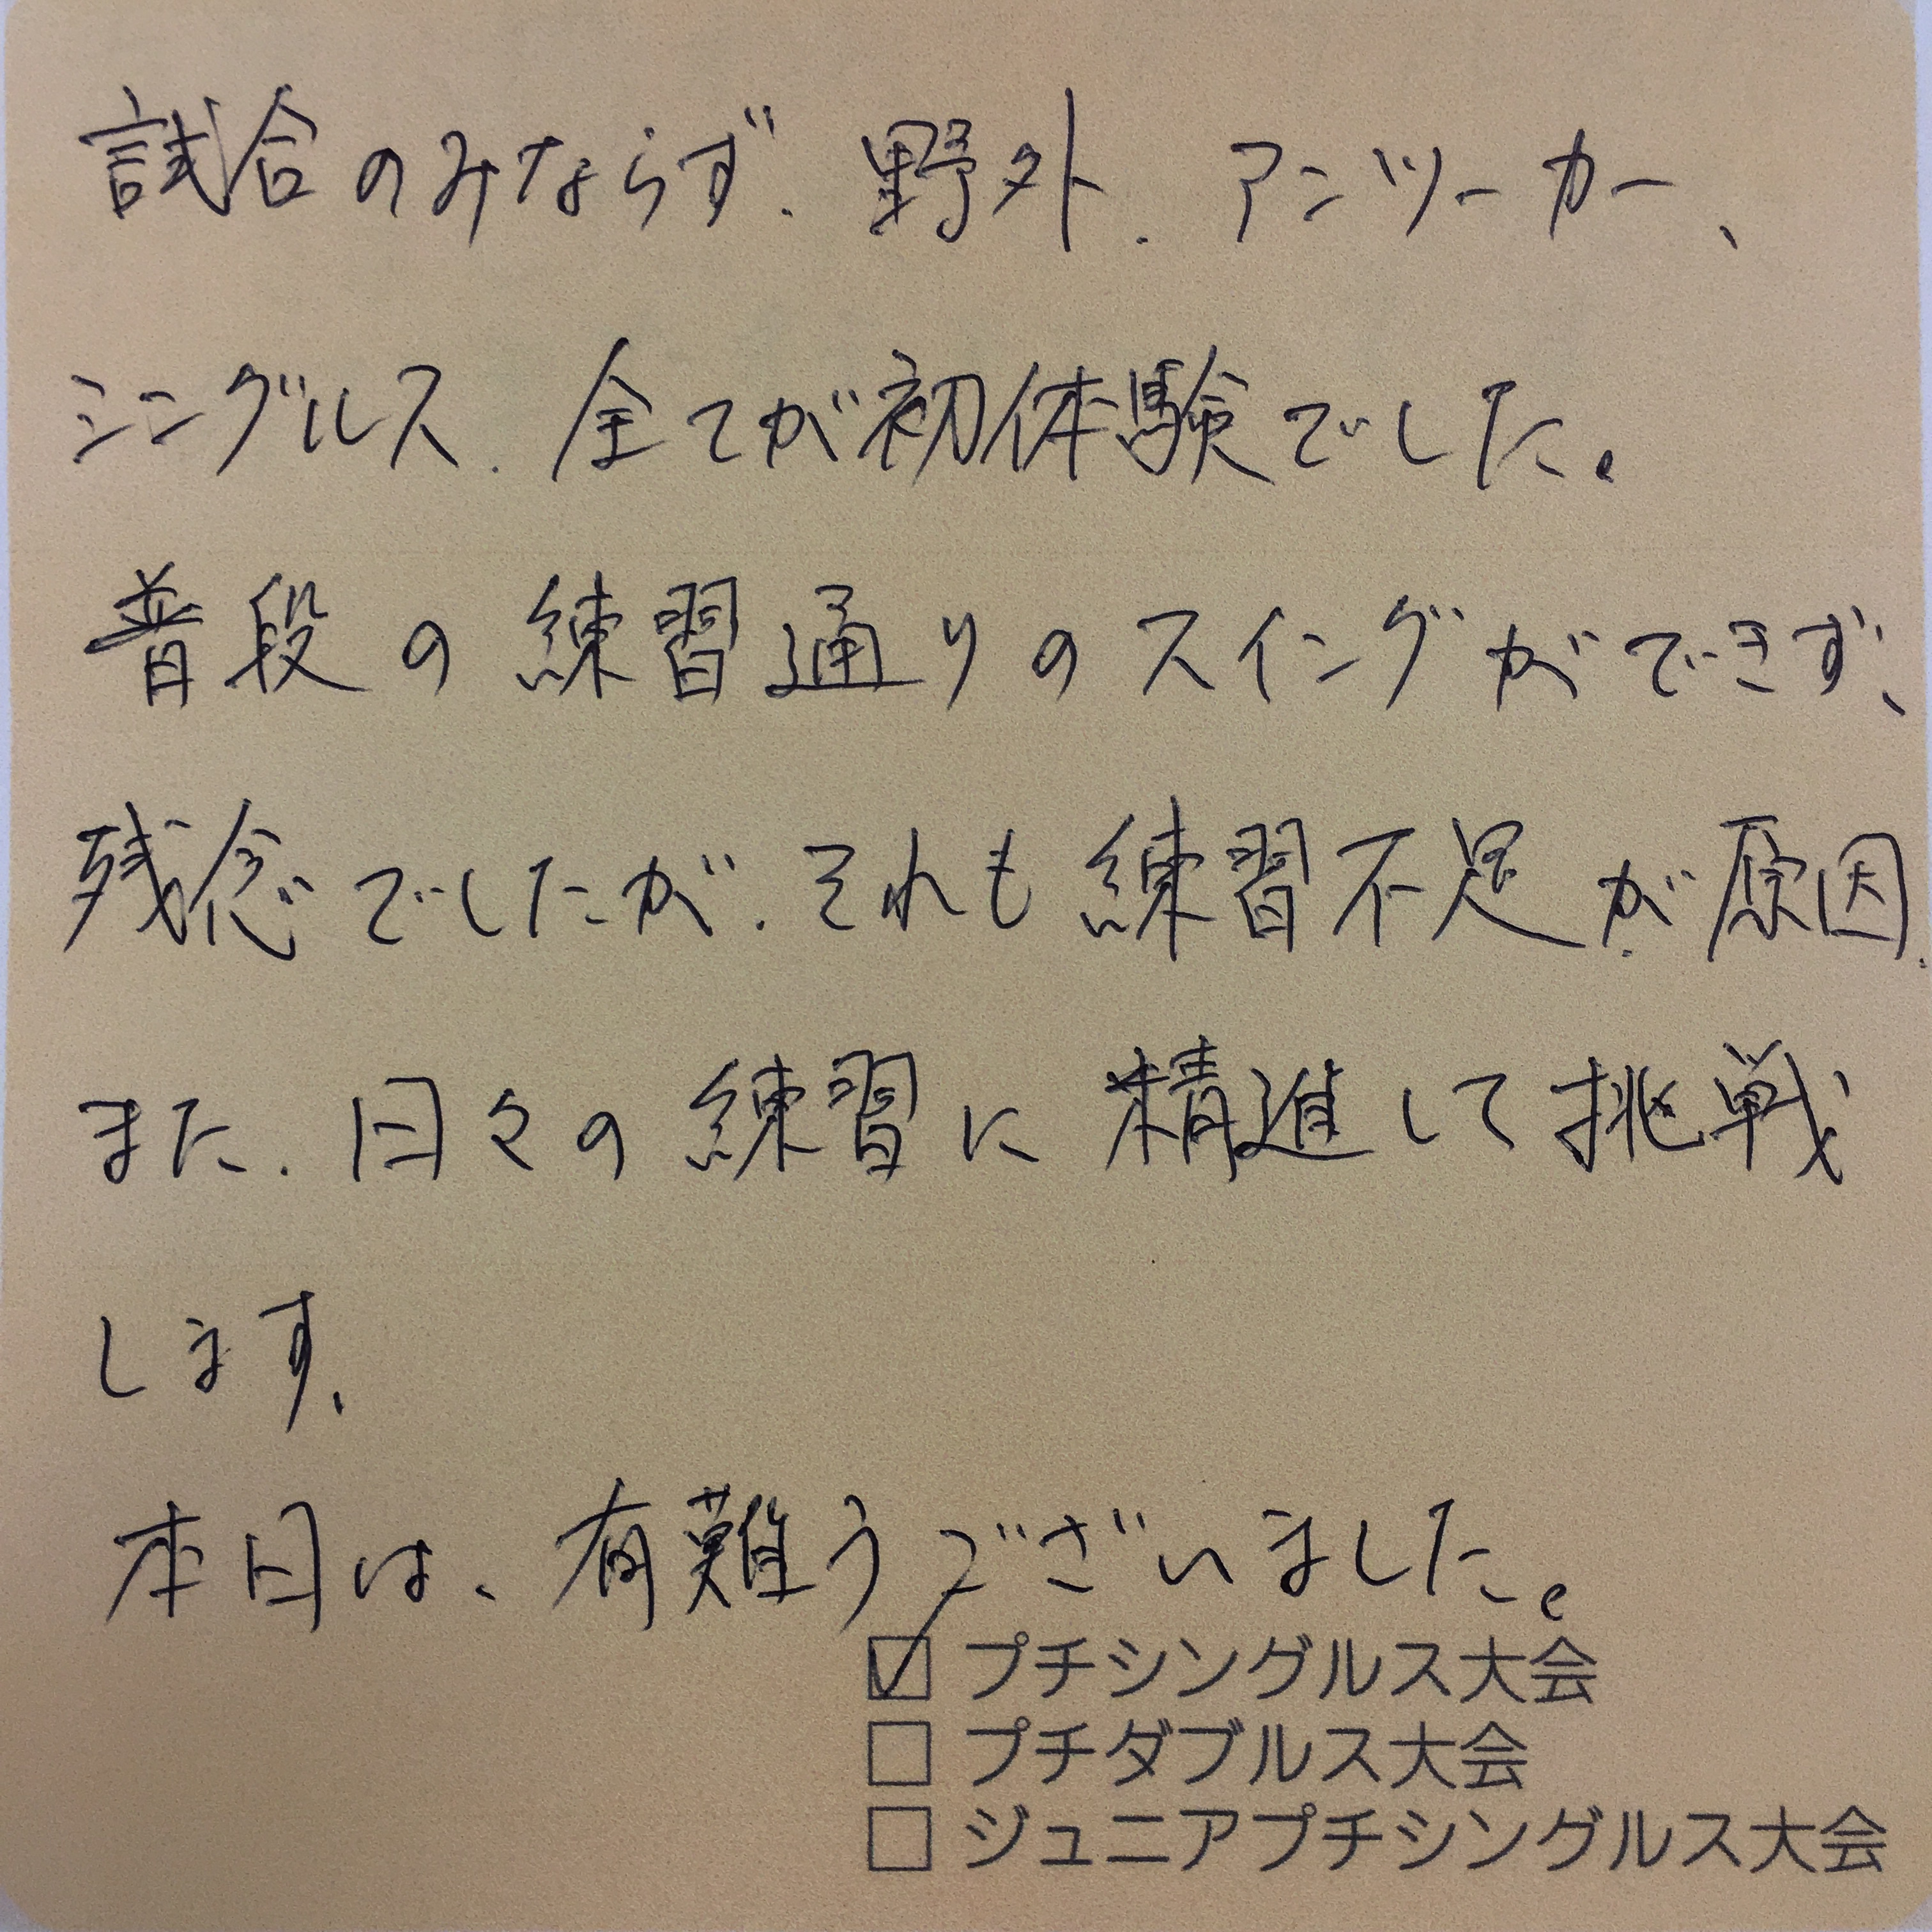 試合のみならず、野外、アンツーカー、
シングルス、全てが初体験でした。
普段の練習通りのスイングができず、
残念でしたが、それも練習不足が原因、
また、日々の練習に精進して挑戦
します、
本日は、有難うございました。
☑ プチシングルス大会
☐ プチダブルス大会
☐ ジュニアプチシングルス大会